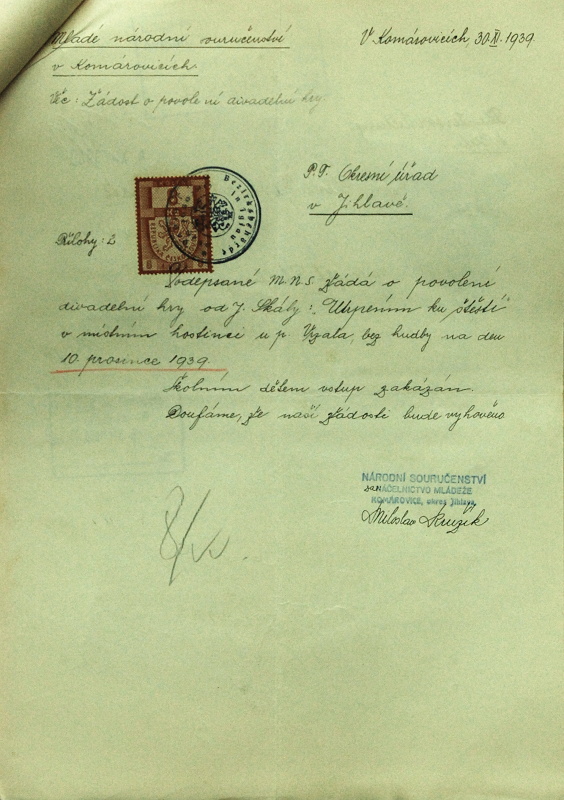 Mladé národní souručenství
V Komárovicích, 30.XI.1939.
v Komárovicích.
Věc: Žádost o povolení divadelní hry.
P.T. Okresní úřad
v Jihlavě.
Přílohy: 2
Podepsané M.N.S. žádá o povolení
divadelní hry od J. Skály: „Utrpením ku štěstí"
v místním hostinci u p. Vrzala, bez hudby na den
10. prosince 1939.
Školním dětem vstup zakázán.
Doufáme, že naší žádosti bude vyhověno
NÁRODNÍ SOURUČENSTVÍ
NÁČELNICTVO MLÁDEŽE
KOMÁROVICE, okres Jihlava.
Miloslav